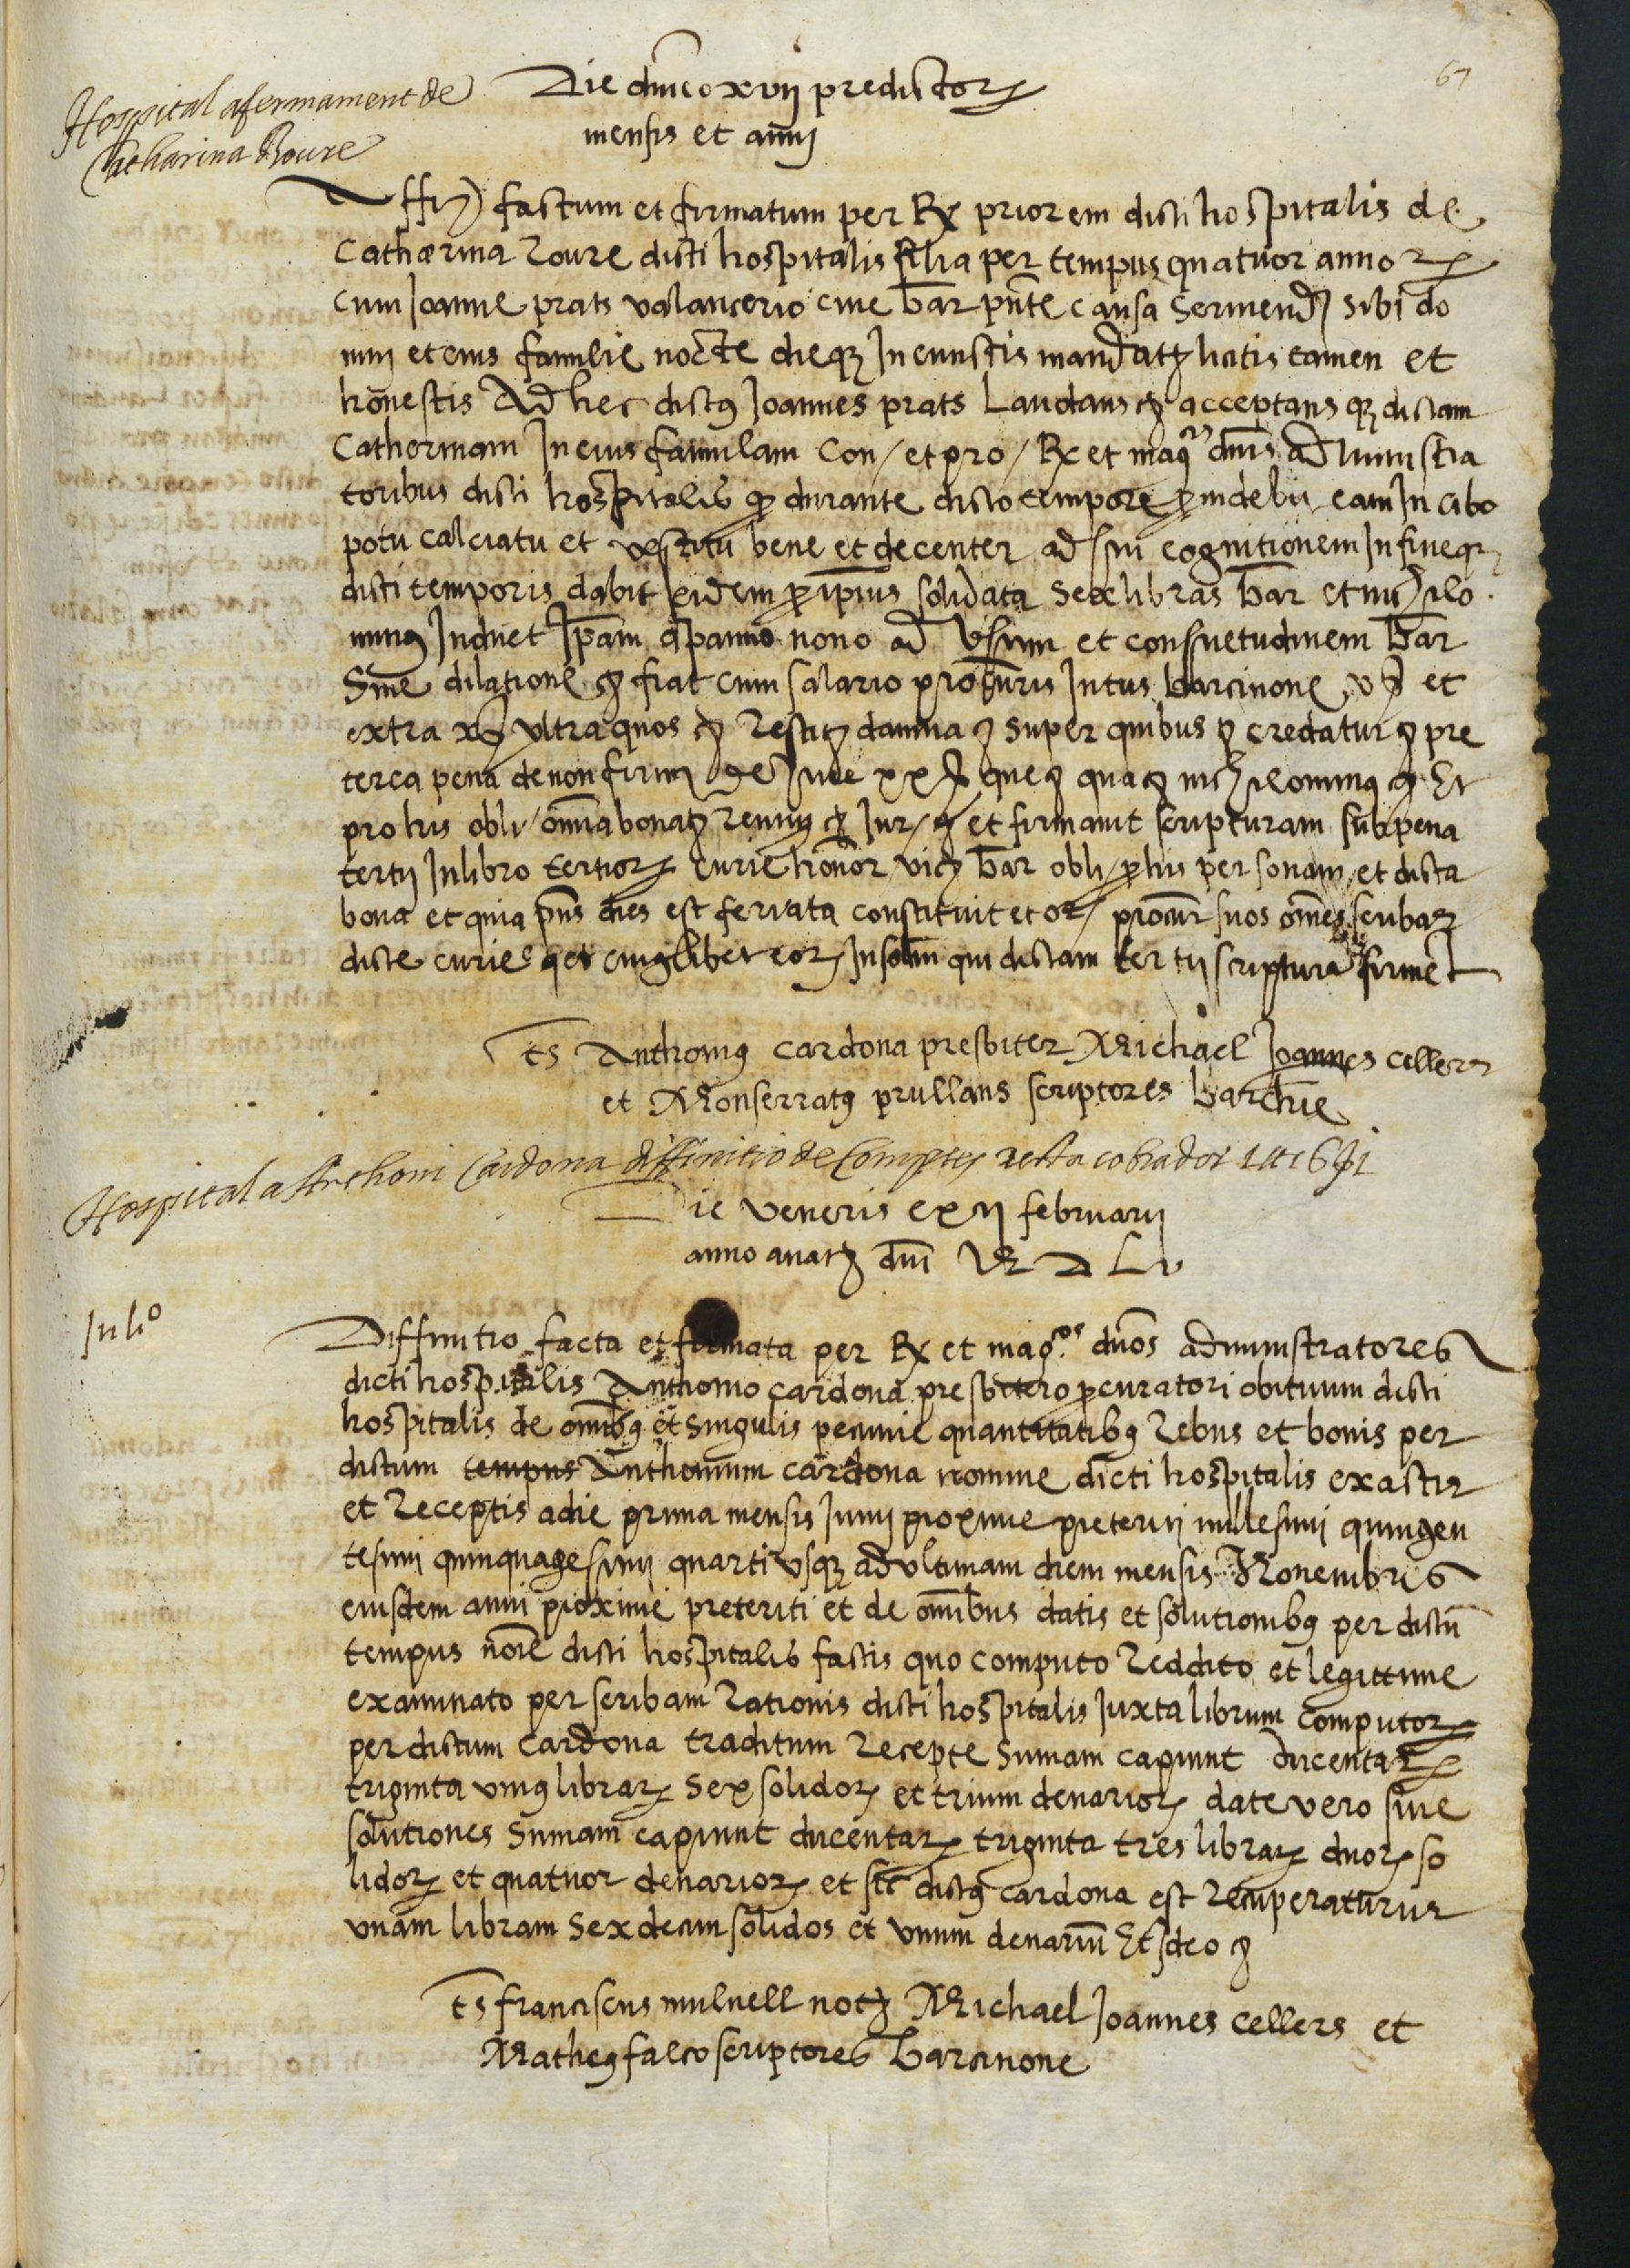 67
Hospital afermament de
Catharina Roure
Die dnico xvij predictor
mensis et anni
Affir factum et firmatum per Rx priorem dicti hospitalis de
Catherina Roure dicti hospitalis filia per tempus quatuor annor
cum Joanne prats valancerio cive bar pnte causa serviendi sibi do
mui et eius familie nocte dieqz In cunctis mandatz licitis tamen et
honestis Ad hec dictus Joannes prats Laudans acceptans qz dictam
Catherinam In eius famulam Con / et pro / Rx et magcis dnis administra
toribus dicti hospitalis q durante dicto tempore providebit eam In cibo
potu calciatu et vestitu bene et decenter ad sui cognitionem In fineqz
dicti temporis dabit eidem p ipsius solidata sex libras bar et nichilo
minus Induet Ipam a panno novo ad Usum et consuetudinem bar
Sine dilatione fiat cum salario procuris Intus barcinone v et
extra x ultra quos Restitz damna super quibus credatur pre
terea pena de non firm nichilominus Et
pro his obli / omnia bona Renuns Jur / et firmavit scripturam sub pena
tertij In libro tertior curie honor vicz bar obli / p his personam / et dicta
bona et quia pns dies est feriata constituit et or / procur suos omes scribas
dicte curie et cuiuslibet eor In solm qui dictam tertij scriptura firmet
Ts Anthonius Cardona presbiter Michael Joannes cellers
et Monserratus prullans scriptores barchne
Hospital a Anthoni Cardona diffinitio de Comptes resta cobrador
Die veneris xxij februarij
anno a natz dni M D Lv
Julio
Diffinitio facta et firmata per Rx et magcos dnos administratores
dicti hospitalis Anthonio cardona presbitero pcuratori obituum dicti
hospitalis de omibus et singulis pecunie quantitatibus Rebus et bonis per
dictum tempus Anthonium cardona nomine dicti hospitalis exactis
et Receptis a die prima mensis Junij proxime preteriti millesimi quingen
tesimi quinquagesimi quarti usqz ad ultimam diem mensis Novembris
eiusdem anni proxime preteriti et de omibus datis et solutionibus per dictu
tempus noie dicti hospitalis factis quo computo Reddito et legittime
examinato per scribam Rationis dicti hospitalis Juxta librum computor
per dictum Cardona traditum Recepte Sumam capiunt ducentar
triginta unius librar Sex solidor et trium denarior date vero sive
solutiones Sumam capiunt ducentar triginta tres librar duor so
lidor et quatuor denarior et sic dictus cardona est Recuperaturus
unam libram Sexdecim solidos et unum denariu Et Ideo
Ts franciscus mulnell not Michael Joannes cellers et
Matheus falco scriptores barcinone